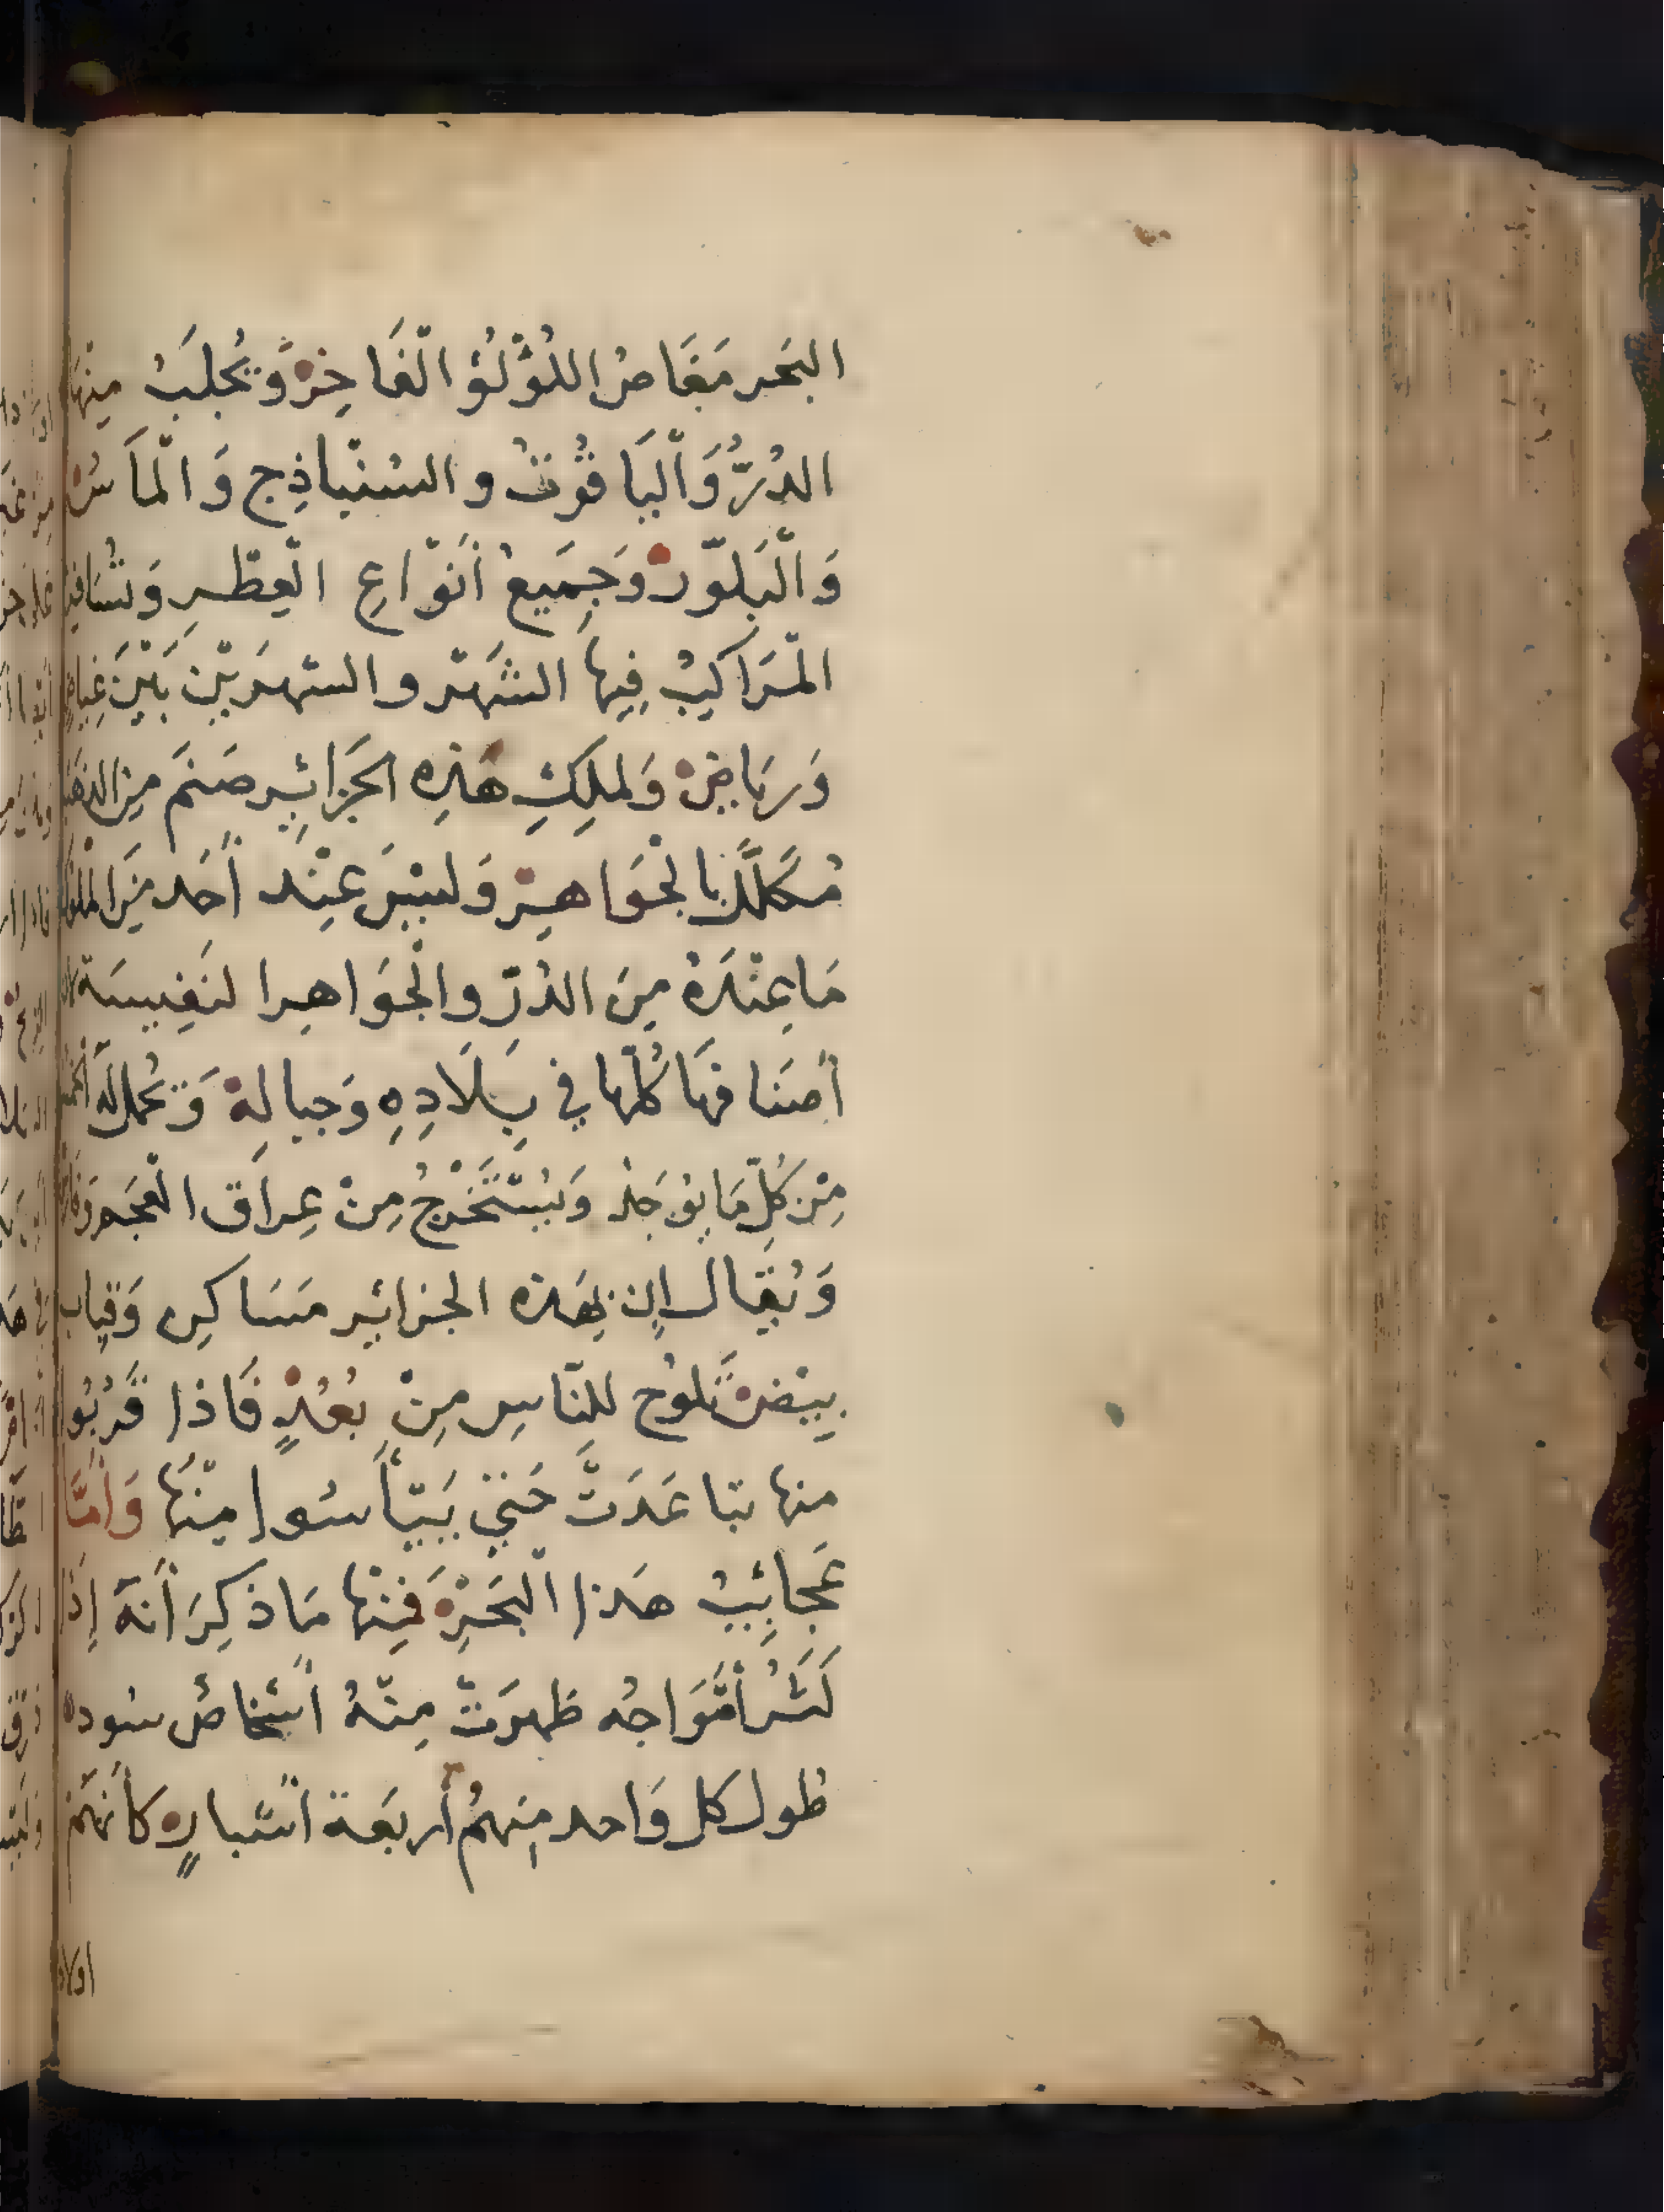 البَحر مَغَاصُ اللُؤْلُؤ الْفَاخِرْ وَيُجْلَبُ مِنْهَا
الدُرُّ وَالْيَاقُوتُ والسُنْبَاذِج وَالْمَاسُ
وَالْبَلّوْر وَجِمَيعُ أنَوْاعِ الْعِطْرِ وَتُسَافِر
الْمَرَاكِبُ فِيهَا الشَهْر والشهرَيْن بَيْنَ غِيَاضٍ
وَرِيَاضْ وَلمَلِكِ هَذِهِ الجَزَائِرِ صَنَم مِن الذَهَب
مُكَلَّلَا بالْجَوَاهِرْ وَليْسَ عِنْد أحَد مِنَ الْمُلُوك
مَا عِنْدَهُ مِنَ الدُرّ والْجَوَاهِر النَفِيسَة
أصَنَافهَا كُلّهَا فِي بِلَادِهِ وَجِبَالِهْ وَتحمَلُ لَهُ الْخَمْر
مِنْ كُلّ مَا يُوجَدْ وَيُسْتَخْرَجُ مِنْ عِرَاق الْعَجَم وَفَارِس
وَيُقَال إن بِهَذه الجزائِر مَسَاكِن وَقِبَاب
بِيْضْ تَلوُح للِنّاسِ مِنْ بُعْدٍ فَاذا قَرُبُوا
منها تبَاعَدَتْ حَتّي يَيْأسُوا مِنْهَا وَأمَّا
عَجَائِبُ هَذا الْبَحْرِ فَمِنْها مَا ذكِرَ أنَّهُ إذَا
كَثُر أمْوَاجُه ظهرَتْ مِنْهُ أشْخاصْ سُود
طُول كل وَاحد مِنهُم أربَعَة أشْبَارٍ كأنَهُم
اولاد